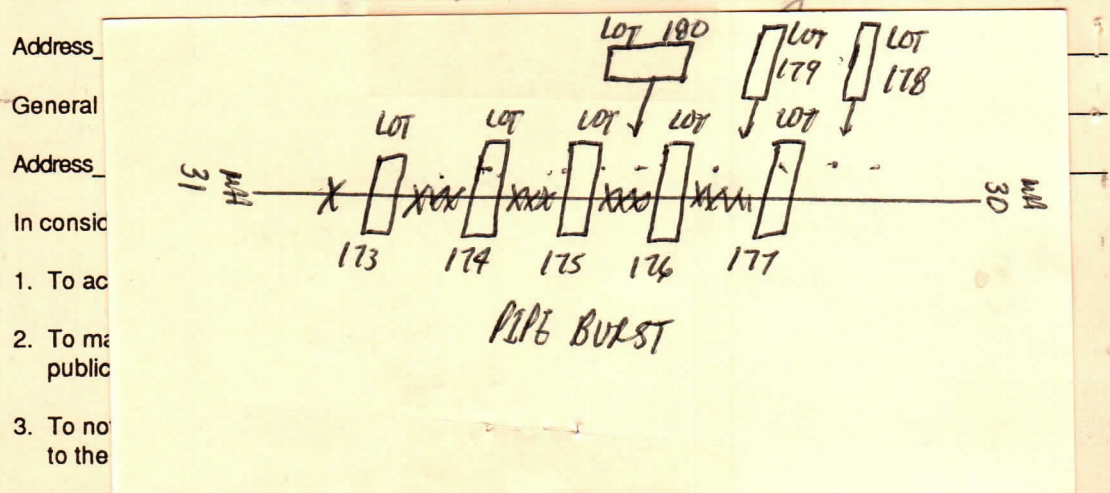 Address
General
Address
In consid
1. To ac
2. To ma
public
3. To no
to the
LOT 180
LOT 179
LOT 178
LOT LOT LOT LOT LOT
MH 31
MH 30
173 174 175 176 177
PIPE BURST